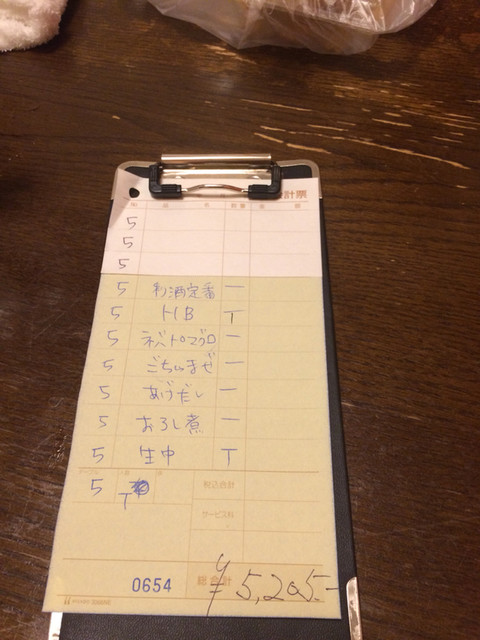 計票
No. 品 名 数量 金 額
5
5
5
5 利酒定番 一
5 HB T
5 ネバトロマグロ 一
5 ごちゃまぜ 一
5 あげだし 一
5 おろし煮 一
5 生中 T
5 T 税込合計
サービス料
0654 総合計 ¥5,205-